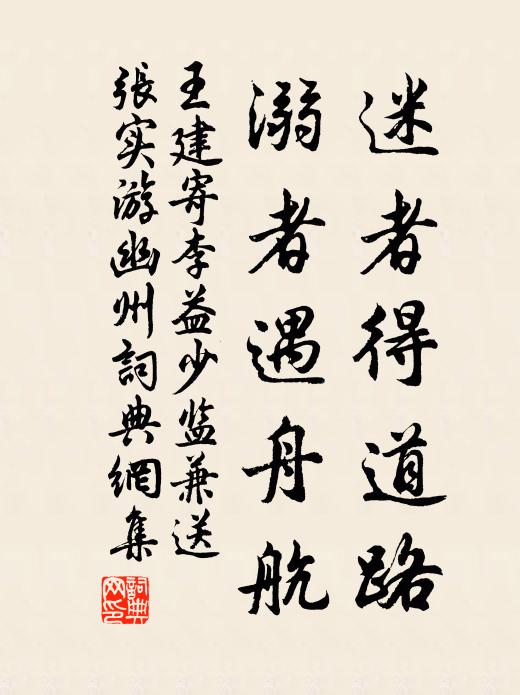 迷者得道路
溺者遇舟航
王建寄李益少监兼送
张实游幽州詞典網集
詞典网印